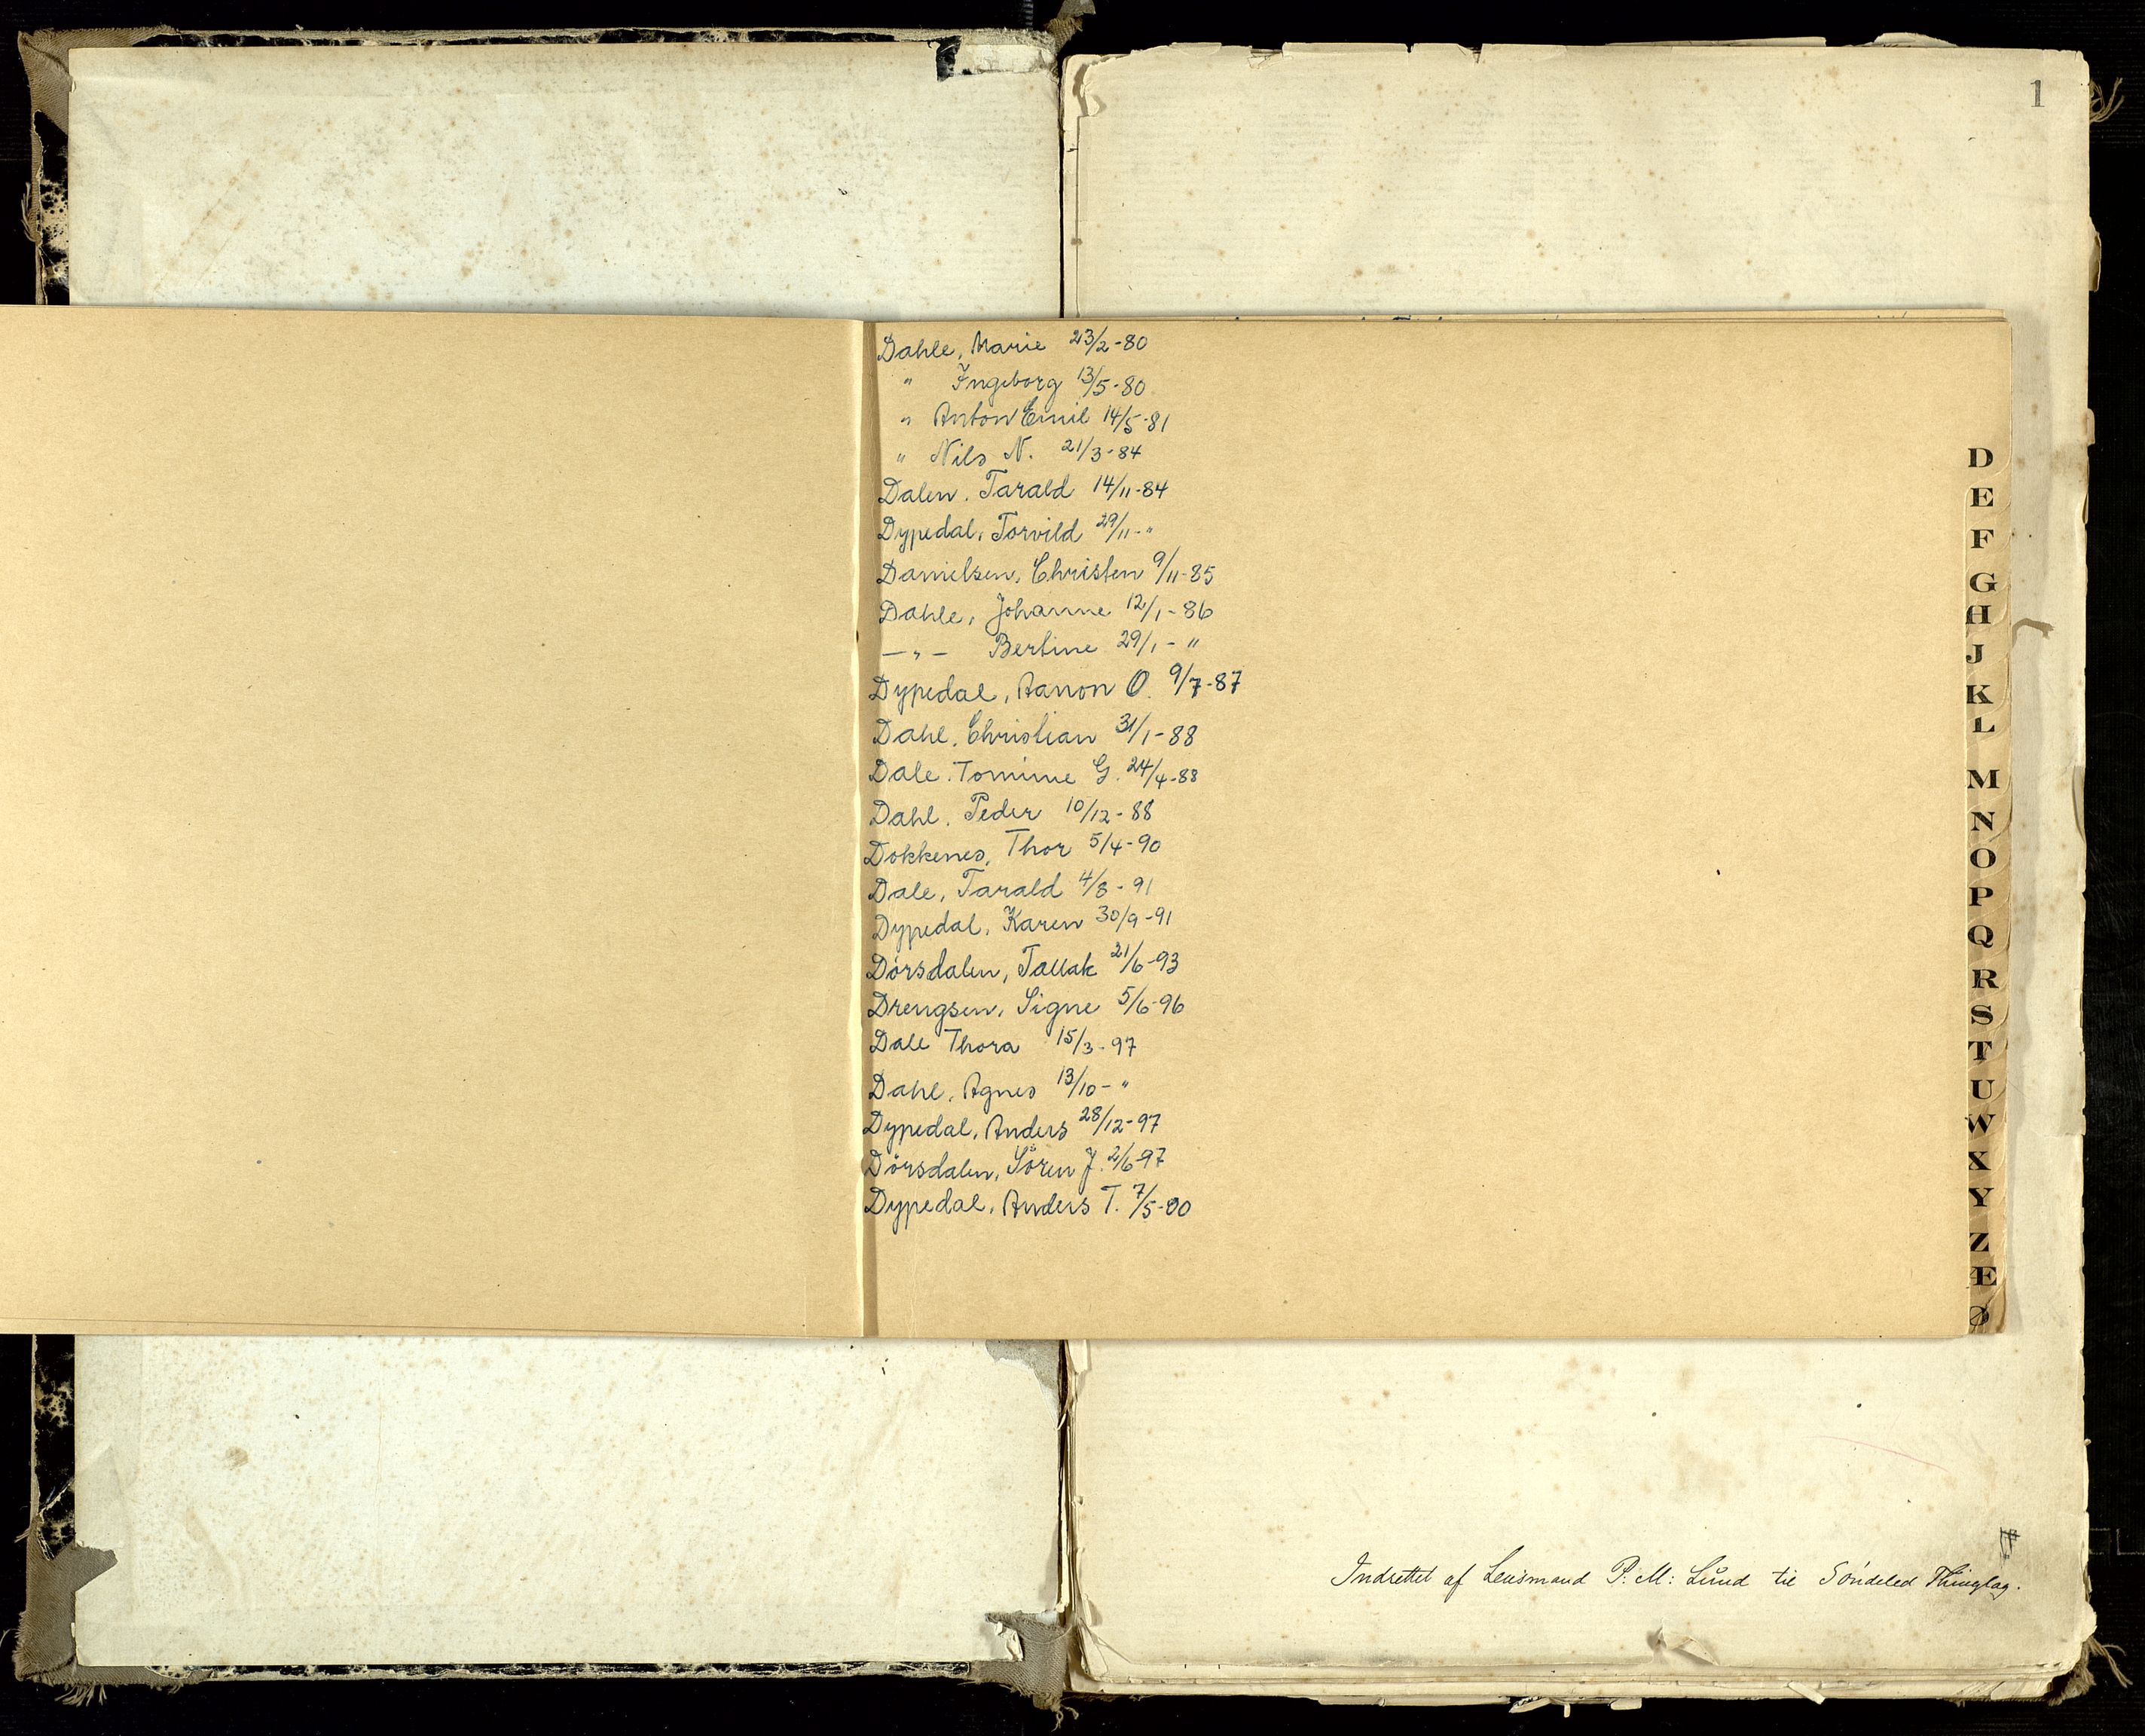 1
Dahle, Marie 23/2-80
" Ingeborg 13/5-80
" Anton Emil 14/5-81
" Nils N. 21/3-84
Dalen, Tarald 14/11-84
Dypedal, Torvild 29/11-"
Danielsen, Christen 9/11-85
Dahle, Johanne 12/1-86
—"— Bertine 29/1-"
Dypedal, Aanon O. 9/7-87
Dahl, Christian 31/1-88
Dale, Tomine G. 24/4-88
Dahl, Peder 10/12-88
Dokkenes, Thor 5/4-90
Dale, Tarald 4/8-91
Dypedal, Karen 30/9-91
Dörsdalen, Tallak 21/6-93
Drengsen, Signe 5/6-96
Dale Thora 15/3-97
Dahl, Agnes 13/10-"
Dypedal, Anders 28/12-97
Dörsdalen, Sören J. 2/6-97
Dypedal, Anders T. 7/5-00
D
E
F
G
H
J
K
L
M
N
O
P
Q
R
S
T
U
W
X
Y
Z
Æ
Ø
Indrettet af Lensmand P: M: Lund til Söndeled Thinglag.